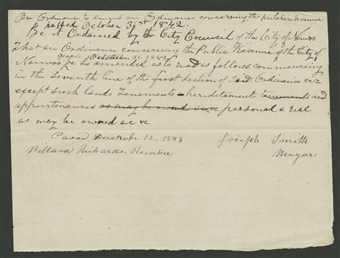 An Ordinance to amend an Ordinance concerning the public revenue
passed October 31st 1842
Be it Ordained by the City Council of the City of Nauvoo
That an Ordinance concerning the Public Revenue of the City of
passed October 31, 1842
Nauvoo be so amended as to read as follows commencing
in the Seventh line of the first section of said Ordinance viz
except such land tenements & hereditaments tenements and
appurtenances as may be owned &c personal & real
as may be owned &c &c
Passed December 12, 1843 Joseph Smith
Willard Richards, Recorder Mayor